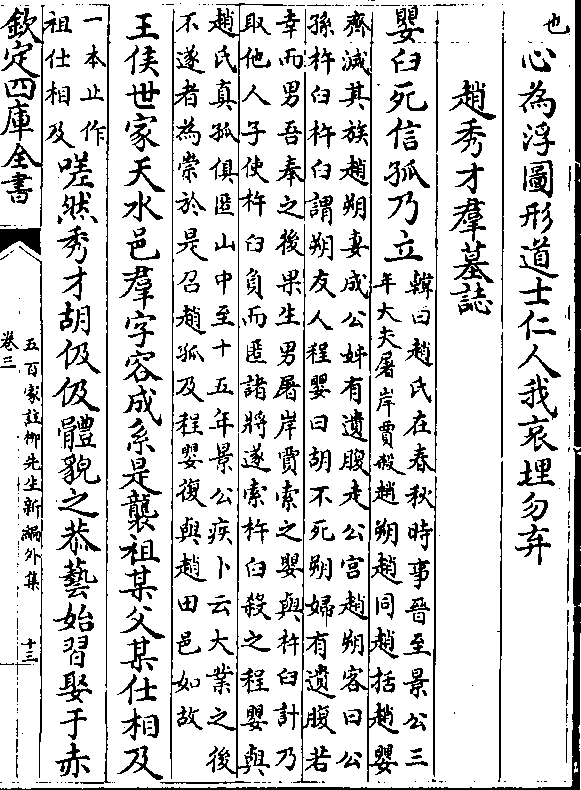 也
心為浮圖形道士仁人我哀埋勿弃
趙秀才羣墓誌
嬰臼死信孤乃立
韓曰趙氏在春秋時事晉至景公三
年大夫屠岸賈殺趙朔趙同趙括趙嬰
齊滅其族趙朔妻成公姊有遺腹走公宮趙朔客曰公
孫杵臼杵臼謂朔友人程嬰曰胡不死朔婦有遺腹若
幸而男吾奉之後果生男屠岸賈索之嬰與杵臼計乃
取他人子使杵臼負而匿諸將遂索杵臼殺之程嬰與
趙氏真孤俱匿山中至十五年景公疾卜云大業之後
不遂者為祟於是召趙孤及程嬰復與趙田邑如故
王侯世家天水邑羣字容成系是襲祖某父某仕相及
一本止作
祖仕相及
嗟然秀才胡伋伋體貌之恭藝始習娶于赤
欽定四庫全書
五百家註柳先生新編外集
卷三
十三